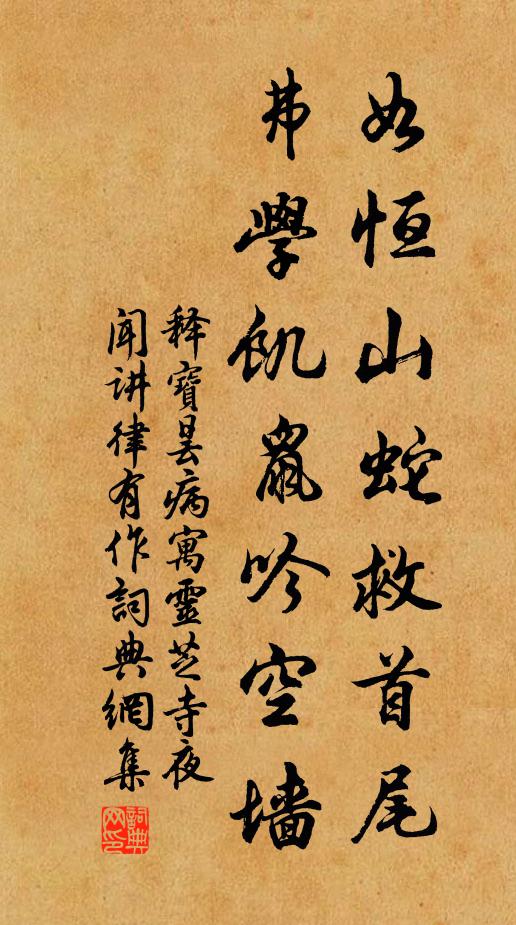 如恒山蛇救首尾
弗學飢鼠吟空墙
释寶曇病寓靈芝寺夜
闻讲律有作詞典網集
詞典网印